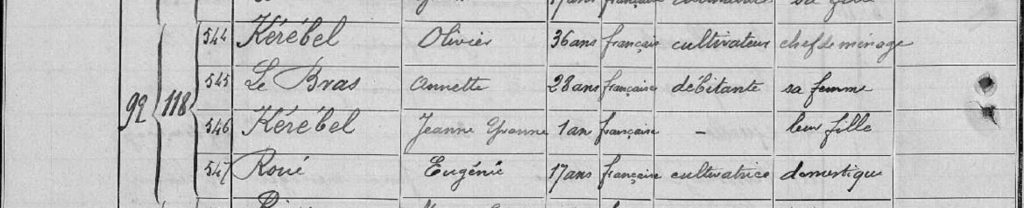 17 ans française cultivatrice sa fille
544 Kérébel Olivier 36 ans français cultivateur chef de ménage
545 Le Bras Annette 28 ans française débitante sa femme
92 118
546 Kérébel Jeanne Yvonne 1 an française - leur fille
547 Roué Eugénie 17 ans française cultivatrice domestique